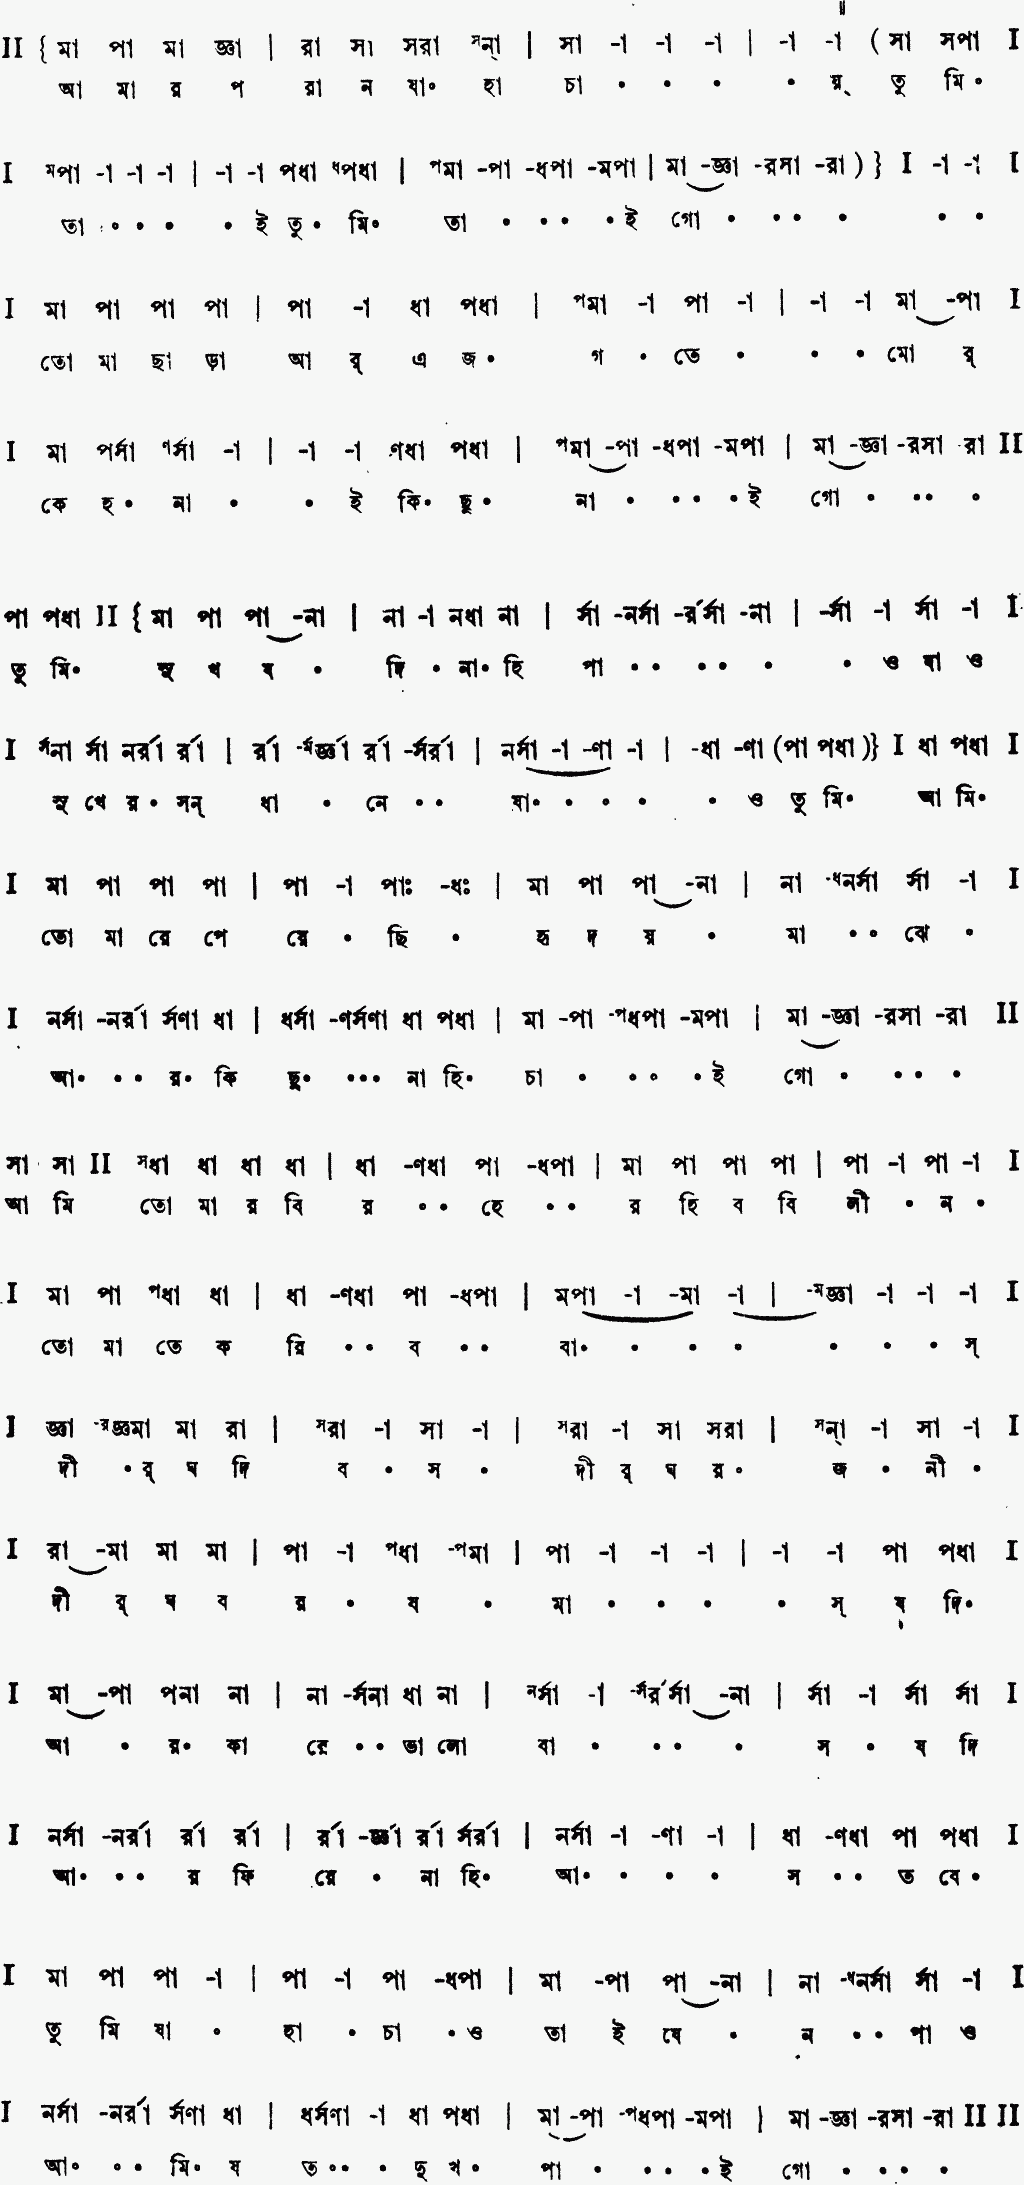 II { মা পা মা জ্ঞা | রা সা সরা সন্া | সা -া -া -া | -া -া ( সা সপা I
আ মা র প রা ন যা॰ হা চা • • • • য়্ তু মি •
I মপা -া -া -া | -া -া পধা ধপধা | পমা -পা -ধপা -মপা | মা -জ্ঞা -রসা -রা ) } I -া -া I
তা • • • • ই তু • মি• তা • • • • ই গো • • • • • •
I মা পা পা পা | পা -া ধা পধা | পমা -া পা -া | -া -া মা -পা I
তো মা ছা ড়া আ র্ এ জ • গ • তে • • • মো র্
I মা পর্সা ণর্সা -া | -া -া ণধা পধা | পমা -পা -ধপা -মপা | মা -জ্ঞা -রসা রা II
কে হ • না • • ই কি• ছু • না • • • • ই গো • • • •
পা পধা II { মা পা পা -না | না -া নধা না | র্সা -নর্সা -র্রর্সা -না | -র্সা -া র্সা -া I
তু মি• সু খ য • দি • না• হি পা • • • • • • ও যা ও
I র্সনা র্সা নর্রা র্রা | র্রা -র্মর্জ্ঞা র্রা -র্সর্রা | নর্সা -া -ণা -া | -ধা -ণা (পা পধা )} I ধা পধা I
সু খে র • সন্ ধা • নে • • যা• • • • • ও তু মি• আ মি•
I মা পা পা পা | পা -া পাঃ -ধঃ | মা পা পা -না | না -ধনর্সা র্সা -া I
তো মা রে পে য়ে • ছি • হৃ দ য় • মা • • ঝে •
I নর্সা -নর্রা র্সণা ধা | ধর্সা -ণর্সণা ধা পধা | মা -পা -পধপা -মপা | মা -জ্ঞা -রসা -রা II
আ• • • র• কি ছু• • • • না হি• চা • • • • ই গো • • • •
সা সা II সধা ধা ধা ধা | ধা -ণধা পা -ধপা | মা পা পা পা | পা -া পা -া I
আ মি তো মা র বি র • • হে • • র হি ব বি লী • ন •
I মা পা পধা ধা | ধা -ণধা পা -ধপা | মপা -া -মা -া | -মজ্ঞা -া -া -া I
তো মা তে ক রি • • ব • • বা• • • • • • • স্
I জ্ঞা -রজ্ঞমা মা রা | সরা -া সা -া | সরা -া সা সরা | সন্া -া সা -া I
দী • র্ ঘ দি ব • স • দী র্ ঘ র • জ • নী •
I রা -মা মা মা | পা -া পধা -পমা | পা -া -া -া | -া -া পা পধা I
দী র্ ঘ ব র • ষ • মা • • • • স্ য দি•
I মা -পা পনা না | না -র্সনা ধা না | নর্সা -া -র্সর্রর্সা -না | র্সা -া র্সা র্সা I
আ • র• কা রে • • ভা লো বা • • • • স • য দি
I নর্সা -নর্রা র্রা র্রা | র্রা -র্জ্ঞা র্রা র্সর্রা | নর্সা -া -ণা -া | ধা -ণধা পা পধা I
আ• • • র ফি রে • না হি• আ• • • • স • • ত বে •
I মা পা পা -া | পা -া পা -ধপা | মা -পা পা -না | না -ধনর্সা র্সা -া I
তু মি যা • হা • চা • ও তা ই যে • ন • • পা ও
I নর্সা -নর্রা র্সণা ধা | ধর্সণা -া ধা পধা | মা -পা -পধপা -মপা | মা -জ্ঞা -রসা -রা II II
আ• • • মি• য ত • • • দু খ • পা • • • • ই গো • • • •